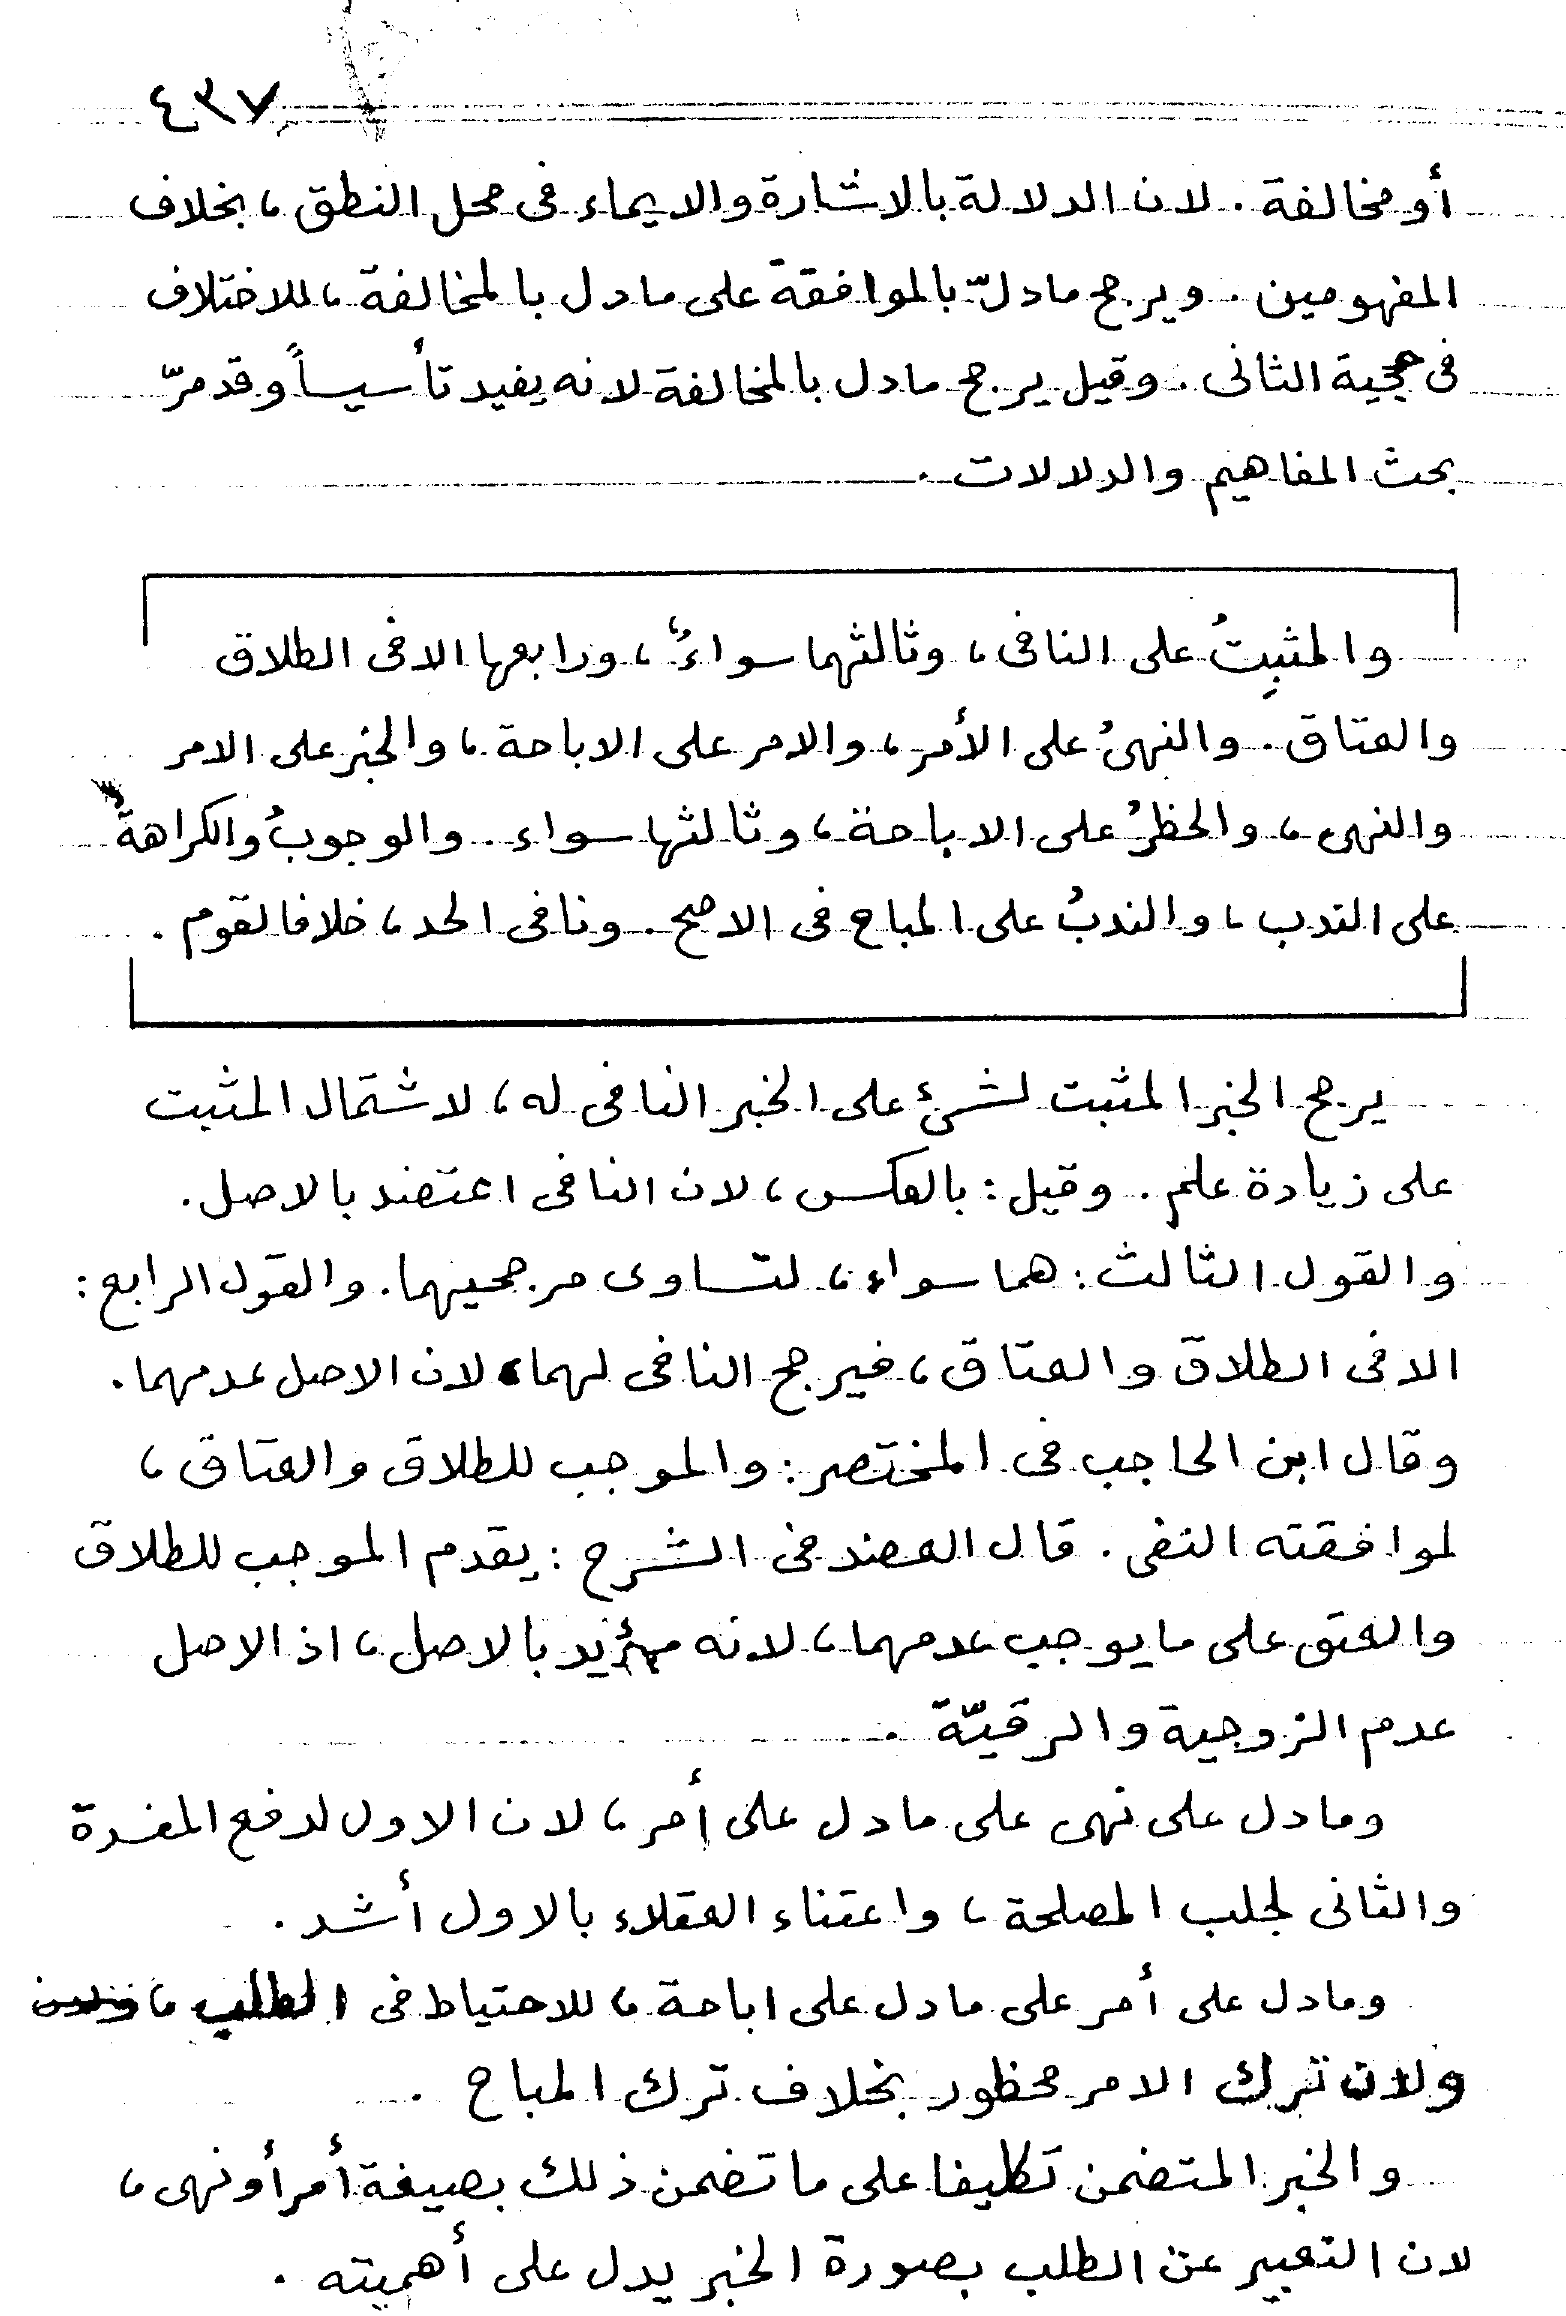 ٤٣٧
أو مخالفة. لان الدلالة بالاشارة والايماء فى محل النطق، بخلاف
المفهومين. ويرجح مادلّ بالموافقة على مادل بالمخالفة، للاختلاف
فى حجية الثانى. وقيل يرجح مادل بالمخالفة لانه يفيد تأسيساً وقد مرّ
بحث المفاهيم والدلالات.
والمثبِتُ على النافى، وثالثهما سواءٌ، ورابعها الا فى الطلاق
والعتاق. والنهىُ على الأمر، والامر على الاباحة، والخبر على الامر
والنهى، والحظرُ على الاباحة، وثالثها سواء. والوجوبُ والكراهةُ
على الندب، والندبُ على المباح فى الاصح. ونافى الحد، خلافا لقوم.
يرجح الخبر المثبت لشىء على الخبر النافى له، لاشتمال المثبت
على زيادة علم. وقيل: بالعكس، لان النافى اعتضد بالاصل.
والقول الثالث: هما سواء، لتساوى مرجحيهما. والقول الرابع:
الا فى الطلاق والعتاق، فيرجح النافى لهما، لان الاصل عدمهما.
وقال ابن الحاجب فى المختصر: والموجب للطلاق والعتاق،
لموافقته النفى. قال العضد فى الشرح: يقدم الموجب للطلاق
والعتق على ما يوجب عدمهما، لانه مؤيد بالاصل، اذ الاصل
عدم الزوجية والرقيّة.
ومادل على نهى على مادل على أمر، لان الاول لدفع المفسدة
والثانى لجلب المصلحة، واعتناء العقلاء بالاول أشد.
ومادل على أمر على مادل على اباحة، للاحتياط فى الطلب،
ولان ترك الامر محظور بخلاف ترك المباح.
والخبر المتضمن تكليفا على ما تضمن ذلك بصيغة أمر أو نهى،
لان التعبير عن الطلب بصورة الخبر يدل على أهميته.